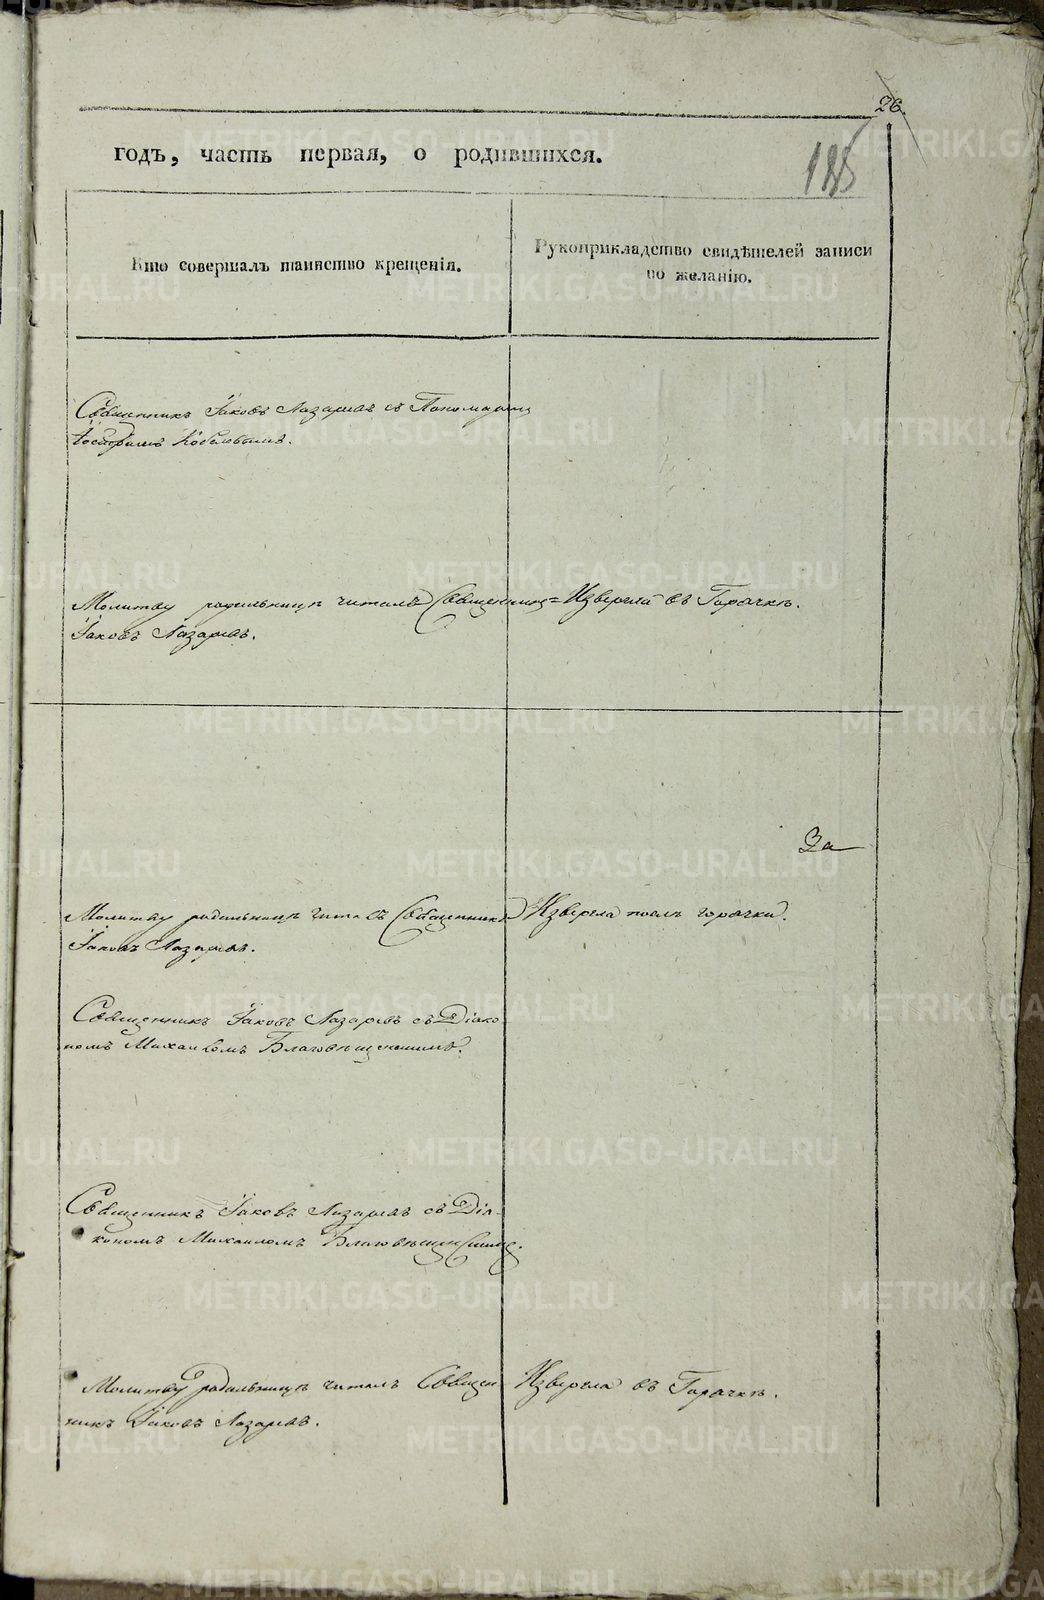 26.
185
годъ, часть первая, о родившихся.
Кто совершалъ таинство крещенія.
Рукоприкладство свидѣтелей записи
по желанію.
Священникъ Іаковъ Лазаревъ съ Пономаремъ
Іосифомъ Кобелевымъ.
Молитву родильницѣ читалъ Священникъ
Іаковъ Лазаревъ.
Извергла въ Горячкѣ.
За
Молитву родильницѣ читалъ Священникъ
Іаковъ Лазаревъ.
Извергла послѣ горячки.
Священникъ Іаковъ Лазаревъ съ Діако
номъ Михаиломъ Благовѣщенскимъ.
Священникъ Іаковъ Лазаревъ съ Діа-
кономъ Михаиломъ Благовѣщенскимъ.
Молитву родильницѣ читалъ Священ
никъ Іаковъ Лазаревъ.
Извергла въ Горячкѣ.
METRIKI.GASO-URAL.RU